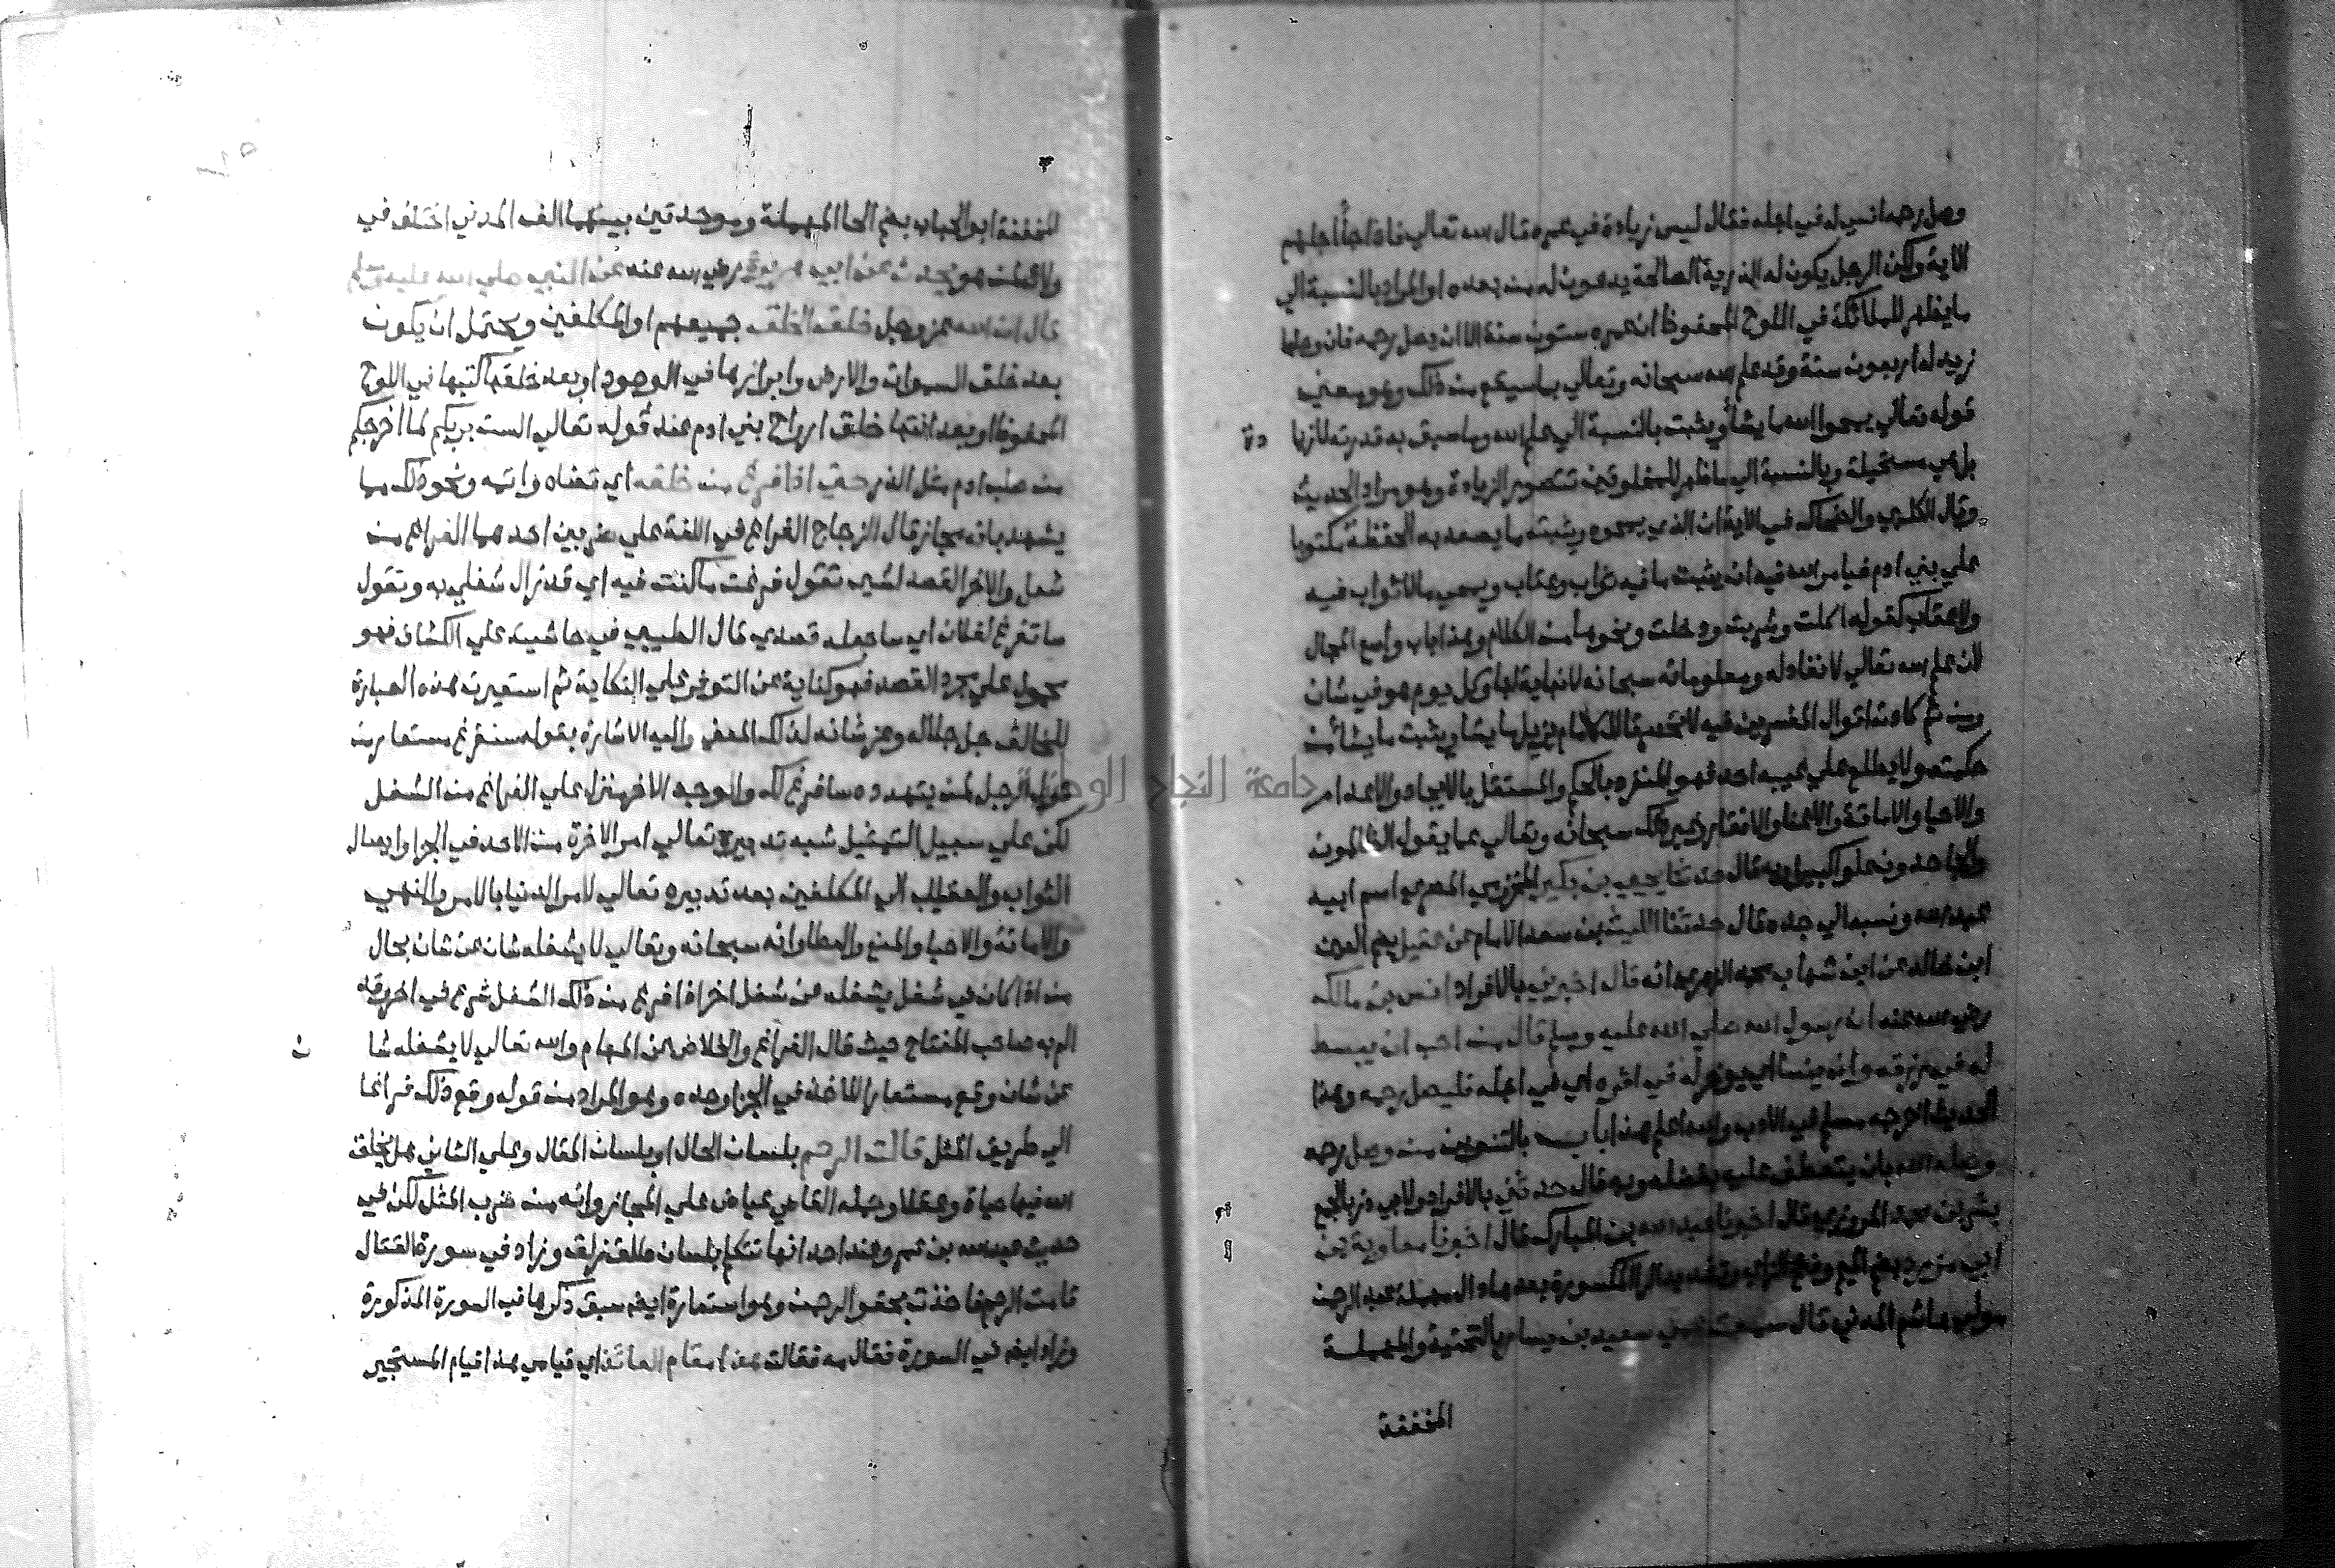 وصل رحمه انسي له في اجله فقال ليس زيادة في عمره قال الله تعالي فاذا جاأجلهم
الاية ولكن الرجل يكون له الذرية الصالحة يدعون له من بعده او المراد بالنسبة الي
ما يظهر للملائكة في اللوح المحفوظ ان عمره ستون سنة الا ان يصل رحمه فان وصلها
زيد له اربعون سنة وقد علم الله سبحانه وتعالي بما سيقع من ذلك وهو معني
قوله تعالي يمحوا الله ما يشأ ويثبت بالنسبة الي علم الله وما سبق به قدرته لا زيادة
بل هي مستحيلة وبالنسبة الي ما ظهر للمخلوقين تتصور الزيادة وهو مراد الحديث
وقال الكلبي والضحاك في الاية ان الذي يمحوه ويثبته ما يصعد به الحفظة مكتوبا
علي بني ادم فيامر الله فيه ان يثبت ما فيه ثواب وعقاب ويمحي ما لا ثواب فيه
ولا عقاب كقوله اكلت وشربت ودخلت ونحوها من الكلام وهذا باب واسع المجال
لان علم الله تعالي لا نفاد له ومعلوماته سبحانه لا نهاية لها وكل يوم هو في شان
ومن ثم كادت اقوال المفسرين فيه لا تنحصر قال الامام يزيل ما يشا ويثبت ما يشأ من
حكمته ولا يطلع علي غيبه احد فهو المنفرد بالحكم والمستقل بالايجاد والاعدام
والاحيا والاماتة والاغنا والافقار وغير ذلك سبحانه وتعالي عما يقول الظالمون
والجاحدون علوا كبيرا وبه قال حدثنا يحيي بن بكير المخزومي المصري اسم ابيه
عبد الله ونسبه الي جده قال حدثنا الليث بن سعد الامام عن عقيل بضم العين
ابن خالد عن ابن شهاب محمد الزهري انه قال اخبرني بالافراد انس بن مالك
رضي الله عنه ان رسول الله صلي الله عليه وسلم قال من احب ان يبسط
له في رزقه وان ينسأ اي يوخر له في اثره اي في اجله فليصل رحمه وهذا
الحديث اخرجه مسلم في الادب والله اعلم هذا باب بالتنوين من وصل رحمه
وصله الله بان يتعطف عليه بفضله وبه قال حدثني بالافراد ولابي ذر بالجمع
بشر بن محمد المروزي قال اخبرنا عبد الله بن المبارك قال اخبرنا معاوية بن
ابي مزرد بضم الميم وفتح الزاي وتشديد الرا المكسورة بعدها دال مهملة عبد الرحمن
مولي هاشم المدني قال سمعت عمي سعيد بن يسار بالتحتية والمهملة
المخففة
المخففة ابو الحباب بضم الحا المهملة وموحدتين بينهما الف المدني اختلف في
ولائه لمن هو يحدث عن ابي هريرة رضي الله عنه عن النبي صلي الله عليه وسلم
قال ان الله عز وجل خلق الخلق جميعهم او المكلفين ويحتمل ان يكون
بعد خلق السموات والارض وابرازها في الوجود او بعد خلقها كتبها في اللوح
المحفوظ او بعد انتها خلق ارواح بني ادم عند قوله تعالي الست بربكم لما اخرجكم
من صلب ادم مثل الذر حتي اذا فرغ من خلقه اي قضاه واتمه ونحو ذلك مما
يشهد بانه مجاز قال الزجاج الفراغ في اللغة علي ضربين احدهما الفراغ من
شغل والاخر القصد لشي تقول فرغت مما كنت فيه اي قد زال شغلي به وتقول
ساتفرغ لفلان اي ساجعله قصدي قال الطيبي في حاشيته علي الكشاف فهو
محمول علي مجرد القصد فهو كناية عن التوفر علي النكاية ثم استعيرت هذه العبارة
للخالق جل جلاله وعز شانه لذلك المعني واليه الاشارة بقوله سنفرغ مستعار من
قول الرجل لمن يتهدده سافرغ لك والوجه الاخر منزل علي الفراغ من الشغل
لكن علي سبيل التمثيل شبه تدبيره تعالي امر الاخرة من الاخذ في الجزا وايصال
الثواب والعقاب الي المكلفين بعد تدبيره تعالي لامر الدنيا بالامر والنهي
والاماتة والاحيا والمنع والعطا وانه سبحانه وتعالي لا يشغله شان عن شان بحال
من اذا كان في شغل يشغله عن شغل اخر اذا فرغ من ذلك الشغل شرع في اخر وقد
الم به صاحب المفتاح حيث قال الفراغ والخلاص عن المهام والله تعالي لا يشغله شا
ن
عن شان وقع مستعارا للاخذ في الجزا وحده وهو المراد من قوله وقع ذلك فراغا
الي طريق المثل قالت الرحم بلسان الحال او بلسان المقال وعلي الثاني هل يخلق
الله فيها حياة وعقلا وحمله القاضي عياض علي المجاز وانه من ضرب المثل لكن في
حديث عبد الله بن عمرو عند احمد انها تتكلم بلسان طلق ذلق وزاد في سورة القتال
قامت الرحم فاخذت بحقو الرحمن وهو استعارة ايضا سبق ذكرها في السورة المذكورة
وزاد ايضا في السورة فقال مه فقالت هذا مقام العائذ اي قيامي هذا قيام المستجير